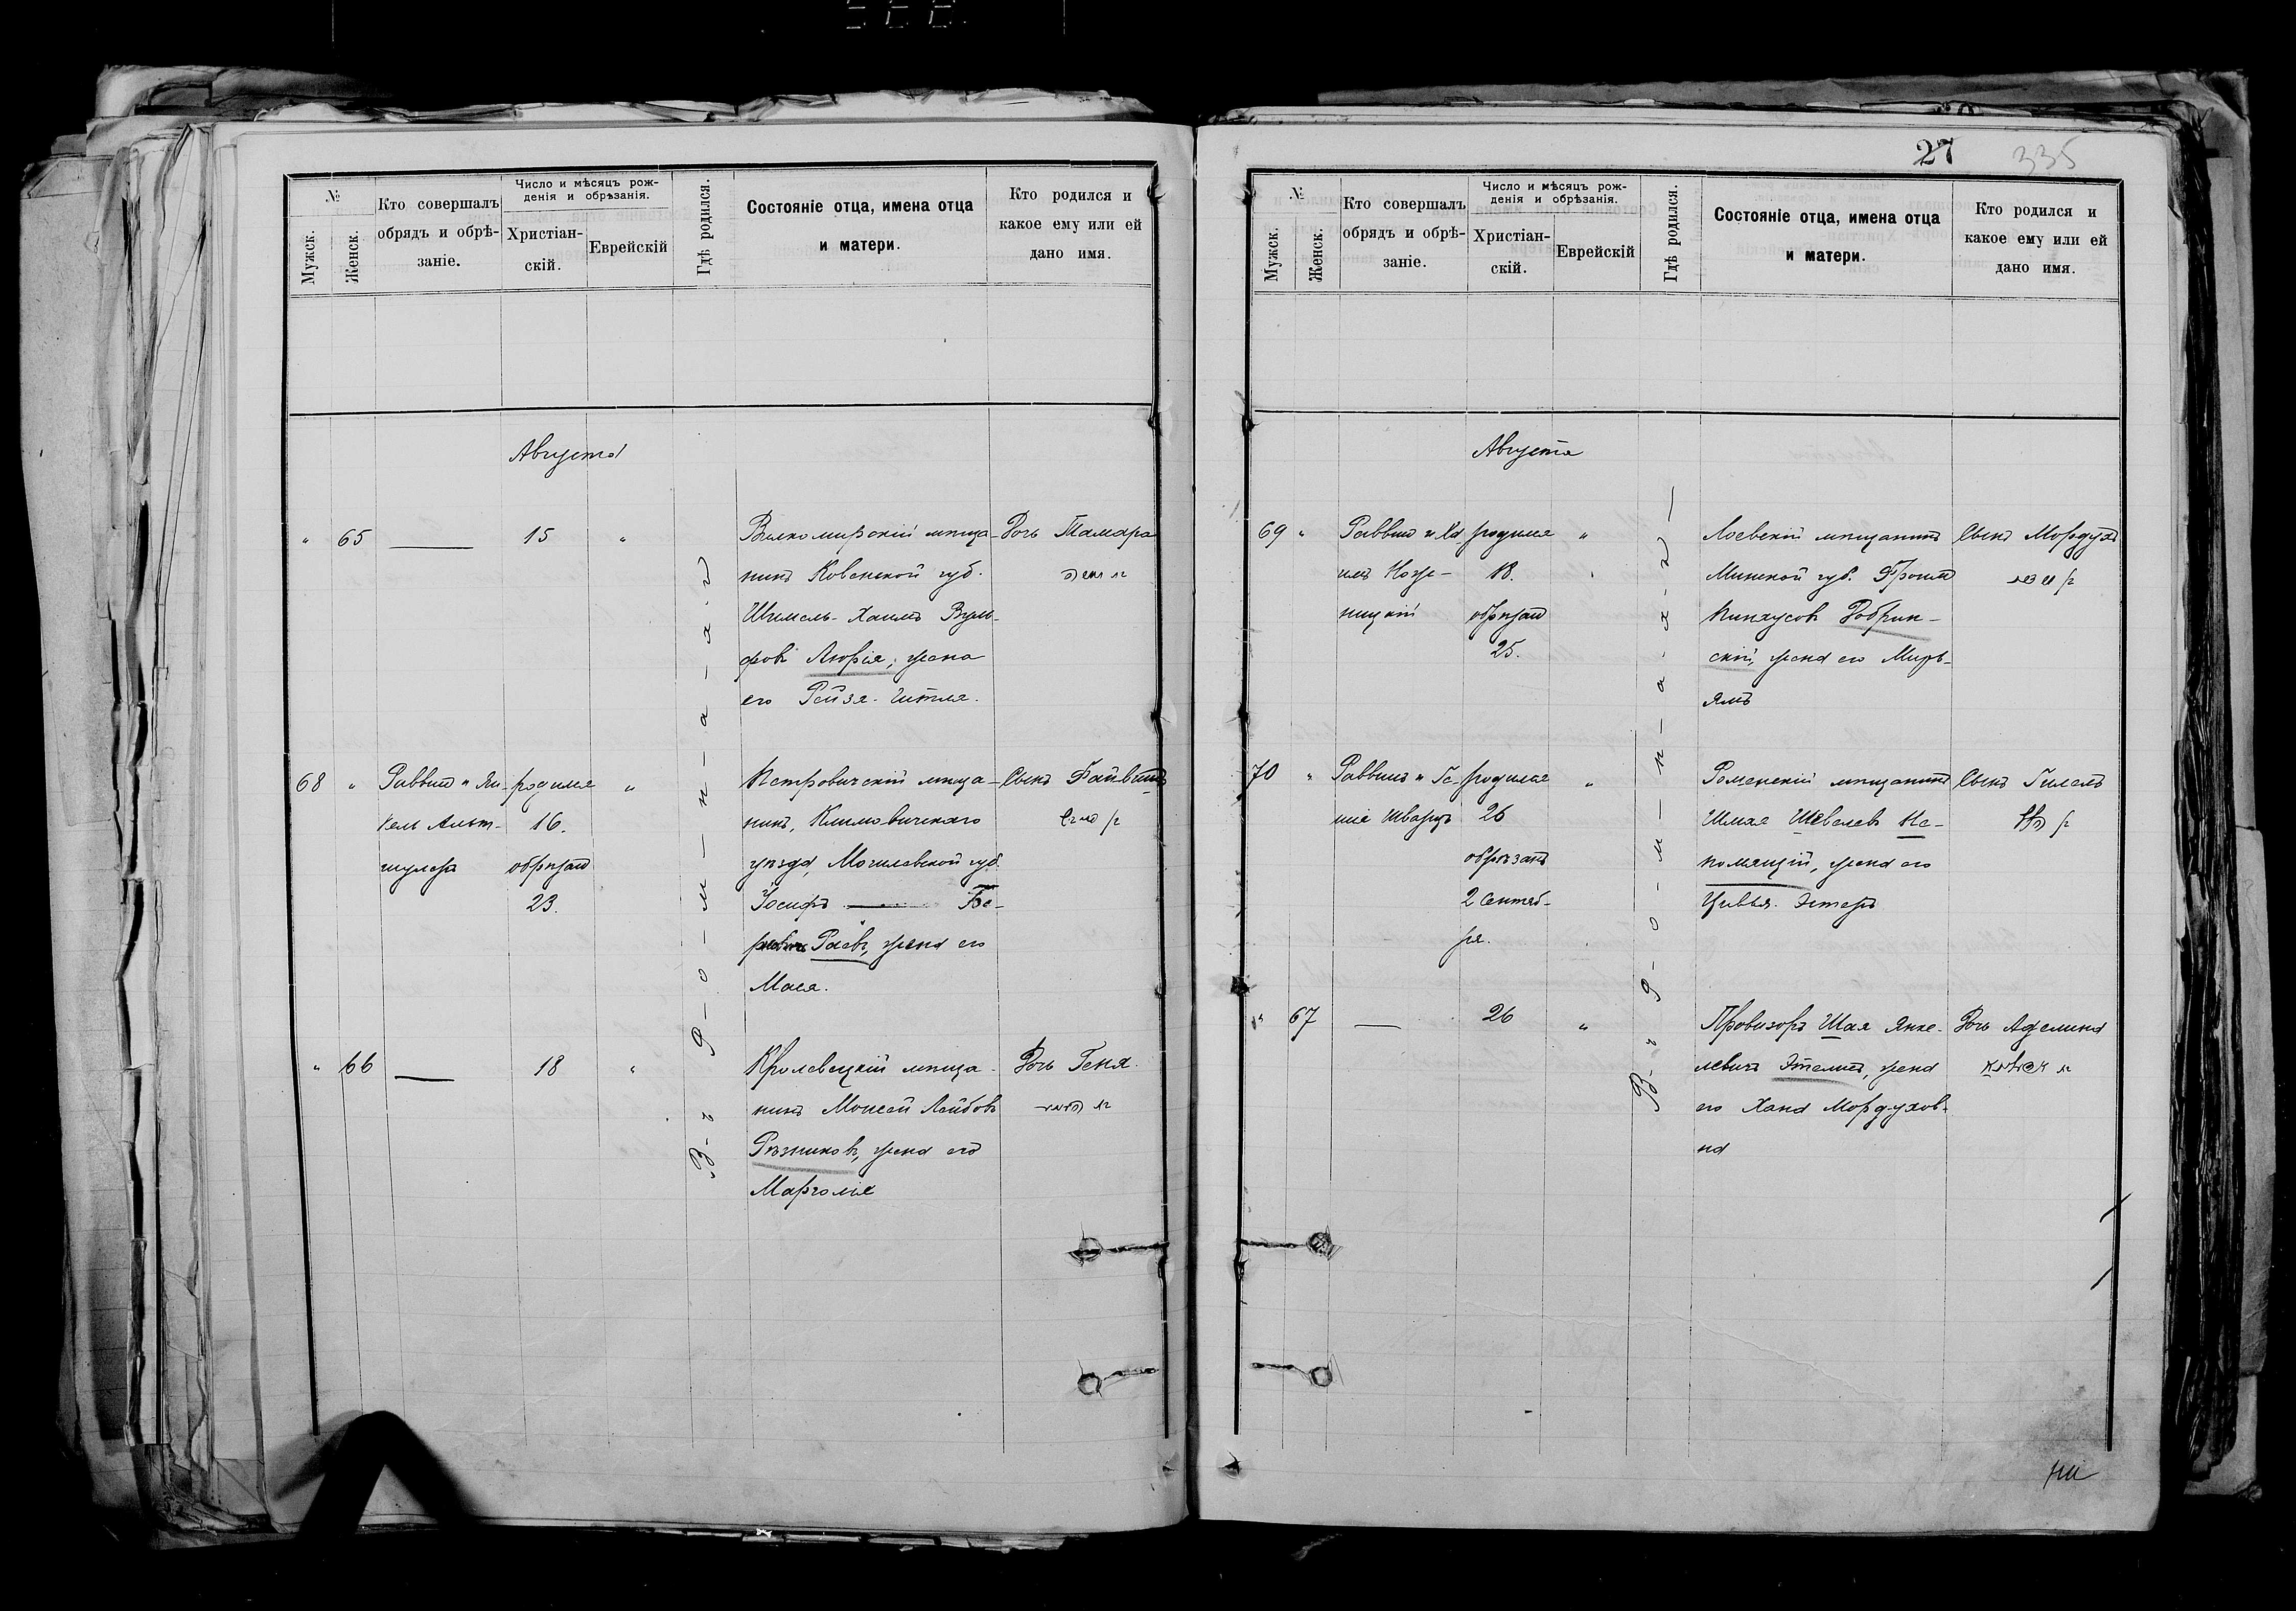 №
Мужск.
Женск.
Кто совершалъ
обрядъ и обрѣ-
заніе.
Число и мѣсяцъ рож-
денія и обрѣзанія.
Христіан-
скій.
Еврейскій
Гдѣ родился.
Состояніе отца, имена отца
и матери.
Кто родился и
какое ему или ей
дано имя.
Августа
В-ъ Р-о-м-н-а-х-ъ
" 65 — 15 "
Вилкомирскій мѣща-
нинъ Ковенской губ.
Шмуель-Хаимъ Вуль-
фовъ Люрія, жена
его Рейза-Итля.
Дочь Тамара
68 "
Раввинъ и Ян-
кель Альт-
шулеръ
родился
16.
обрѣзанъ
23.
"
Петровичскій мѣща-
нинъ, Климовичскаго
уѣзда, Могилевской губ.
Іосифъ — Бе-
Раевъ, жена его
Мася.
Сынъ Файвишъ
" 66 — 18 "
Кролевецкій мѣща-
нинъ Моисей Лейбовъ
Рѣзниковъ, жена его
Марголія
Дочь Геня.
27
335
№
Мужск.
Женск.
Кто совершалъ
обрядъ и обрѣ-
заніе.
Число и мѣсяцъ рож-
денія и обрѣзанія.
Христіан-
скій.
Еврейскій
Гдѣ родился.
Состояніе отца, имена отца
и матери.
Кто родился и
какое ему или ей
дано имя.
Августа
В-ъ Р-о-м-н-а-х-ъ —
69 "
Раввинъ и Ха-
имъ
ницкій
родился
18.
обрѣзанъ
25.
"
Лоевскій мѣщанинъ
Минской губ. Фроимъ
Пинхусовъ Добрин-
скій, жена его Мирь-
ямъ
Сынъ Мордухъ
70 "
Раввинъ и Ге-
Шварцъ
родился
26
обрѣзанъ
2 Сентяб-
ря.
"
Роменскій мѣщанинъ
Шмая Шевелевъ Не-
помящій, жена его
Цивья-Эстеръ
Сынъ Гилель
" 67 — 26 "
Провизоръ Шая Янке-
левичъ Этелисъ, жена
его Хана Мордухов-
на
Дочь Аделина